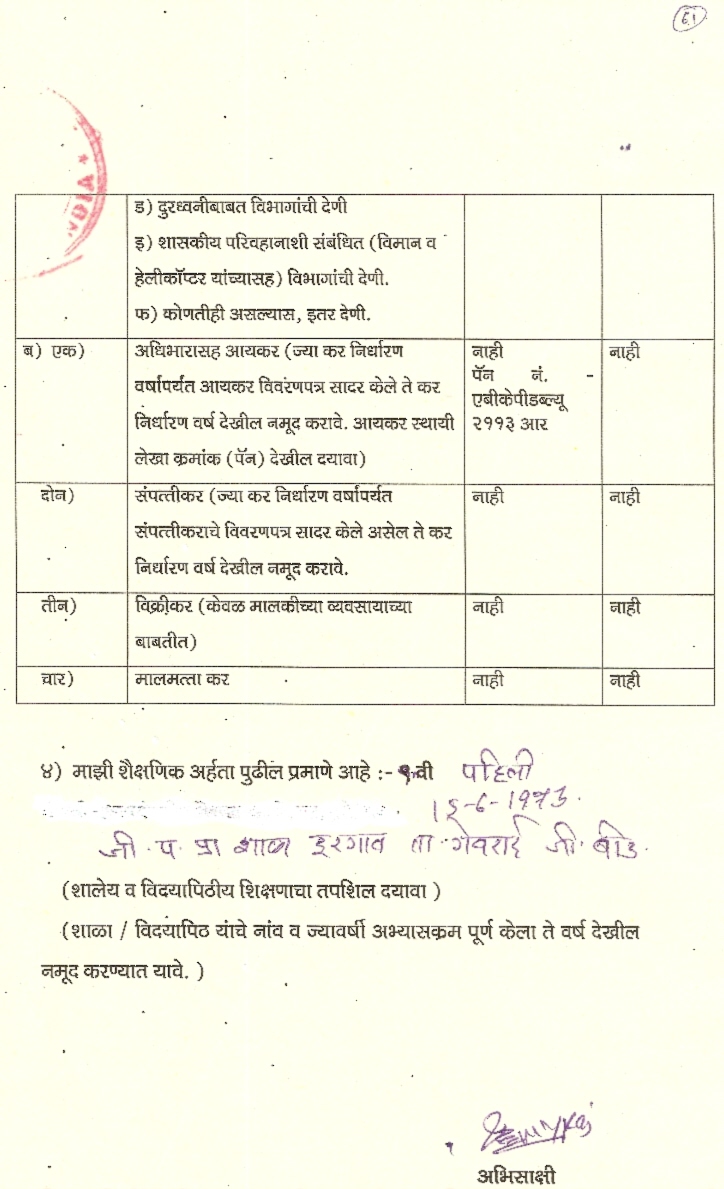 61
NDIA *
ड) दुरध्वनीबाबत विभागांची देणी
इ) शासकीय परिवहानाशी संबंधित (विमान व
हेलीकॉप्टर यांच्यासह) विभागांची देणी.
फ) कोणतीही असल्यास, इतर देणी.
ब) एक)
अधिभारासह आयकर (ज्या कर निर्धारण
वर्षापर्यंत आयकर विवरणपत्र सादर केले ते कर
निर्धारण वर्ष देखील नमूद करावे. आयकर स्थायी
लेखा क्रमांक (पॅन) देखील दयावा)
नाही
पॅन नं. -
एबीकेपीडब्ल्यू
२११३ आर
नाही
दोन)
संपत्तीकर (ज्या कर निर्धारण वर्षापर्यंत
संपत्तीकराचे विवरणपत्र सादर केले असेल ते कर
निर्धारण वर्ष देखील नमूद करावे.
नाही
नाही
तीन)
विक्रीकर (केवळ मालकीच्या व्यवसायाच्या
बाबतीत)
नाही
नाही
चार)
मालमत्ता कर
नाही
नाही
४) माझी शैक्षणिक अर्हता पुढील प्रमाणे आहे :- वी पहिली
जी. प. प्रा शाळा इरगाव ता. गेवराई जी. बीड.
(शालेय व विदयापिठीय शिक्षणाचा तपशिल दयावा )
(शाळा / विदयापिठ यांचे नांव व ज्यावर्षी अभ्यासक्रम पूर्ण केला ते वर्ष देखील
नमूद करण्यात यावे. )
अभिसाक्षी